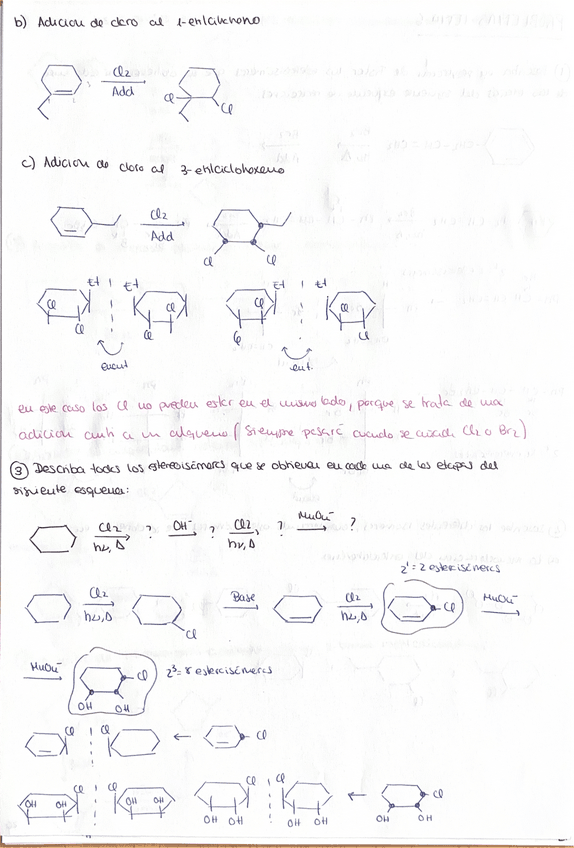 b) Adición de cloro al 1-etilciclohexeno
Cl2
Add
Cl
Cl
c) Adición de cloro al 3-etilciclohexeno
Cl2
Add
Cl
Cl
Et Et Et Et
Cl Cl Cl Cl
Cl Cl Cl Cl
enant ent.
en este caso los Cl no pueden estar en el mismo lado, porque se trata de una
adición anti a un alqueno (Siempre pasará cuando se añade Cl2 o Br2)
③ Describa todos los estereoisómeros que se obtienen en cada una de las etapas del
siguiente esquema:
Cl2 ? OH- ? Cl2 ? MnO4- ?
hν, Δ hν, Δ
2¹ = 2 estereisómeros
Cl2 Base Cl2 Cl MnO4-
hν, Δ hν, Δ
Cl
MnO4- Cl 2³ = 8 estereisómeros
OH OH
Cl Cl Cl
Cl Cl Cl Cl Cl
OH OH OH OH
OH OH OH OH OH OH